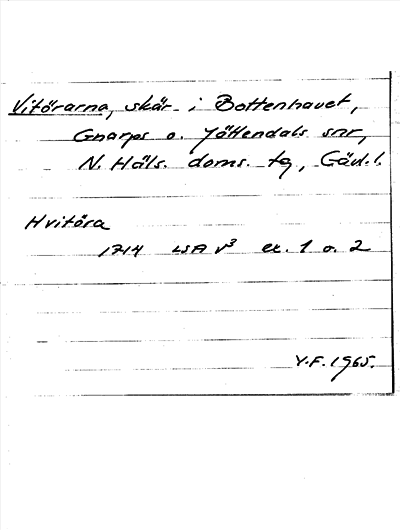 Vitörarna, skär i Bottenhavet,
Gnarps o. Jättendals snr,
N. Häls. doms. tg, Gävl. l.
Hvitöra
1714 LSA V³ ex. 1 o. 2
V.F. 1965.